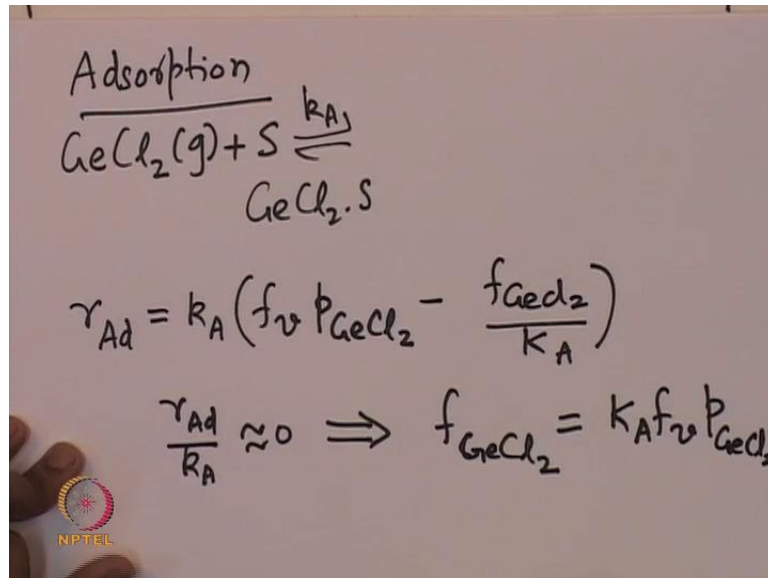 Adsorption
GeCl₂(g) + S ⇌ kA,
GeCl₂.S
rAd = kA (fv pGeCl₂ - fGeCl₂/KA)
rAd/kA ≈ 0 ⟹ fGeCl₂ = KA fv pGeCl₂
NPTEL